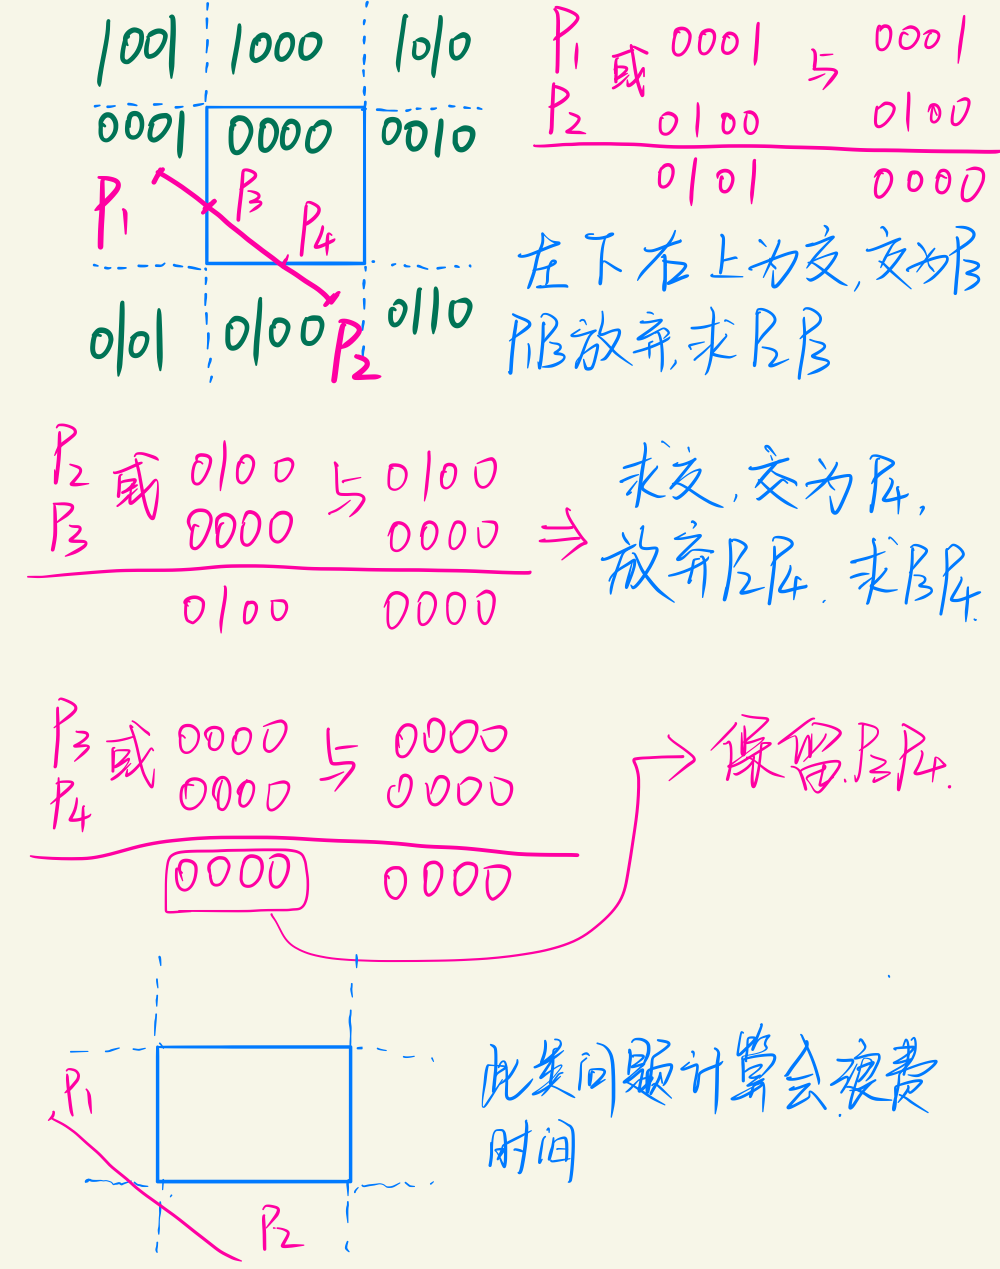 1001 1000 1010
0001 0000 0010
P1 P3 P4
0101 0100 P2 0110
P1 或 0001 与 0001
P2 0100 0100
0101 0000
左下右上为交,交为P3
P1P3放弃,求P2P3
P2 或 0100 与 0100
P3 0000 0000
0100 0000
⇒ 求交,交为P4,
放弃P2P4. 求P3P4.
P3 或 0000 与 0000
P4 0000 0000
0000 0000
→ 保留P3P4.
P1
P2
此类问题计算会浪费
时间